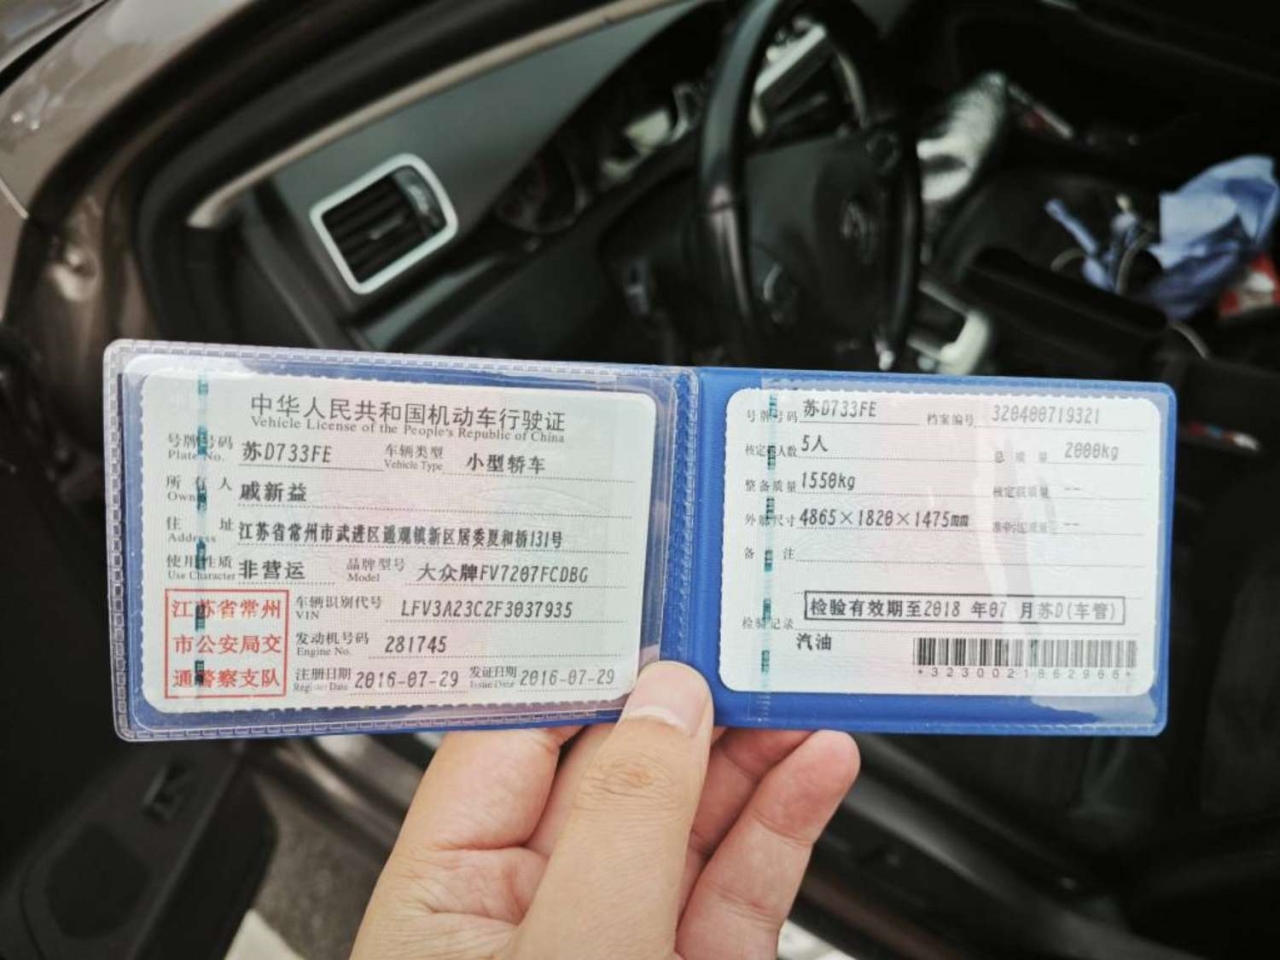 中华人民共和国机动车行驶证
Vehicle License of the People's Republic of China
号牌号码 苏D733FE 车辆类型 小型轿车
Plate No. Vehicle Type
所有人 戚新益
Owner
住址 江苏省常州市武进区遥观镇新区居委夏和桥131号
Address
使用性质 非营运 品牌型号 大众牌FV7207FCDBG
Use Character Model
江苏省常州
市公安局交
通警察支队
车辆识别代号 LFV3A23C2F3037935
VIN
发动机号码 281745
Engine No.
注册日期 2016-07-29 发证日期 2016-07-29
Register Date Issue Date
号牌号码 苏D733FE 档案编号 320400719321
核定人数 5人 总质量 2000kg
整备质量 1550kg 核定载质量 --
外廓尺寸 4865×1820×1475mm --
备注
检验有效期至2018 年07 月苏D(车管)
检验记录
汽油